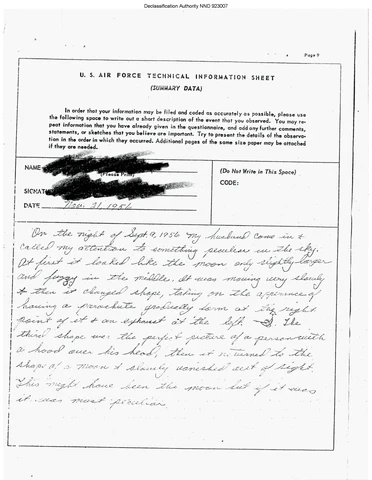 Declassification Authority NND 923007
Page 9
U. S. AIR FORCE TECHNICAL INFORMATION SHEET
(SUMMARY DATA)
In order that your information may be filed and coded as accurately as possible, please use
the following space to write out a short description of the event that you observed. You may re-
peat information that you have already given in the questionnaire, and add any further comments,
statements, or sketches that you believe are important. Try to present the details of the observa-
tion in the order in which they occurred. Additional pages of the same size paper may be attached
if they are needed.
NAME
(Please Print)
(Do Not Write in This Space)
CODE:
SIGNATU
DATE Nov. 21 1956
On the night of Sept 9, 1956 my husband came in &
called my attention to something peculiar in the sky.
At first it looked like the moon only slightly larger
and foggy in the middle. It was moving very slowly
& then it changed shape, taking on the appearance of
having a parachute gradually form at the right
point of it & an exhaust at the left. The
third shape was the perfect picture of a person with
a hood over his head, then it returned to the
shape of a moon & slowly vanished out of sight.
This might have been the moon but if it was
it was most peculiar.